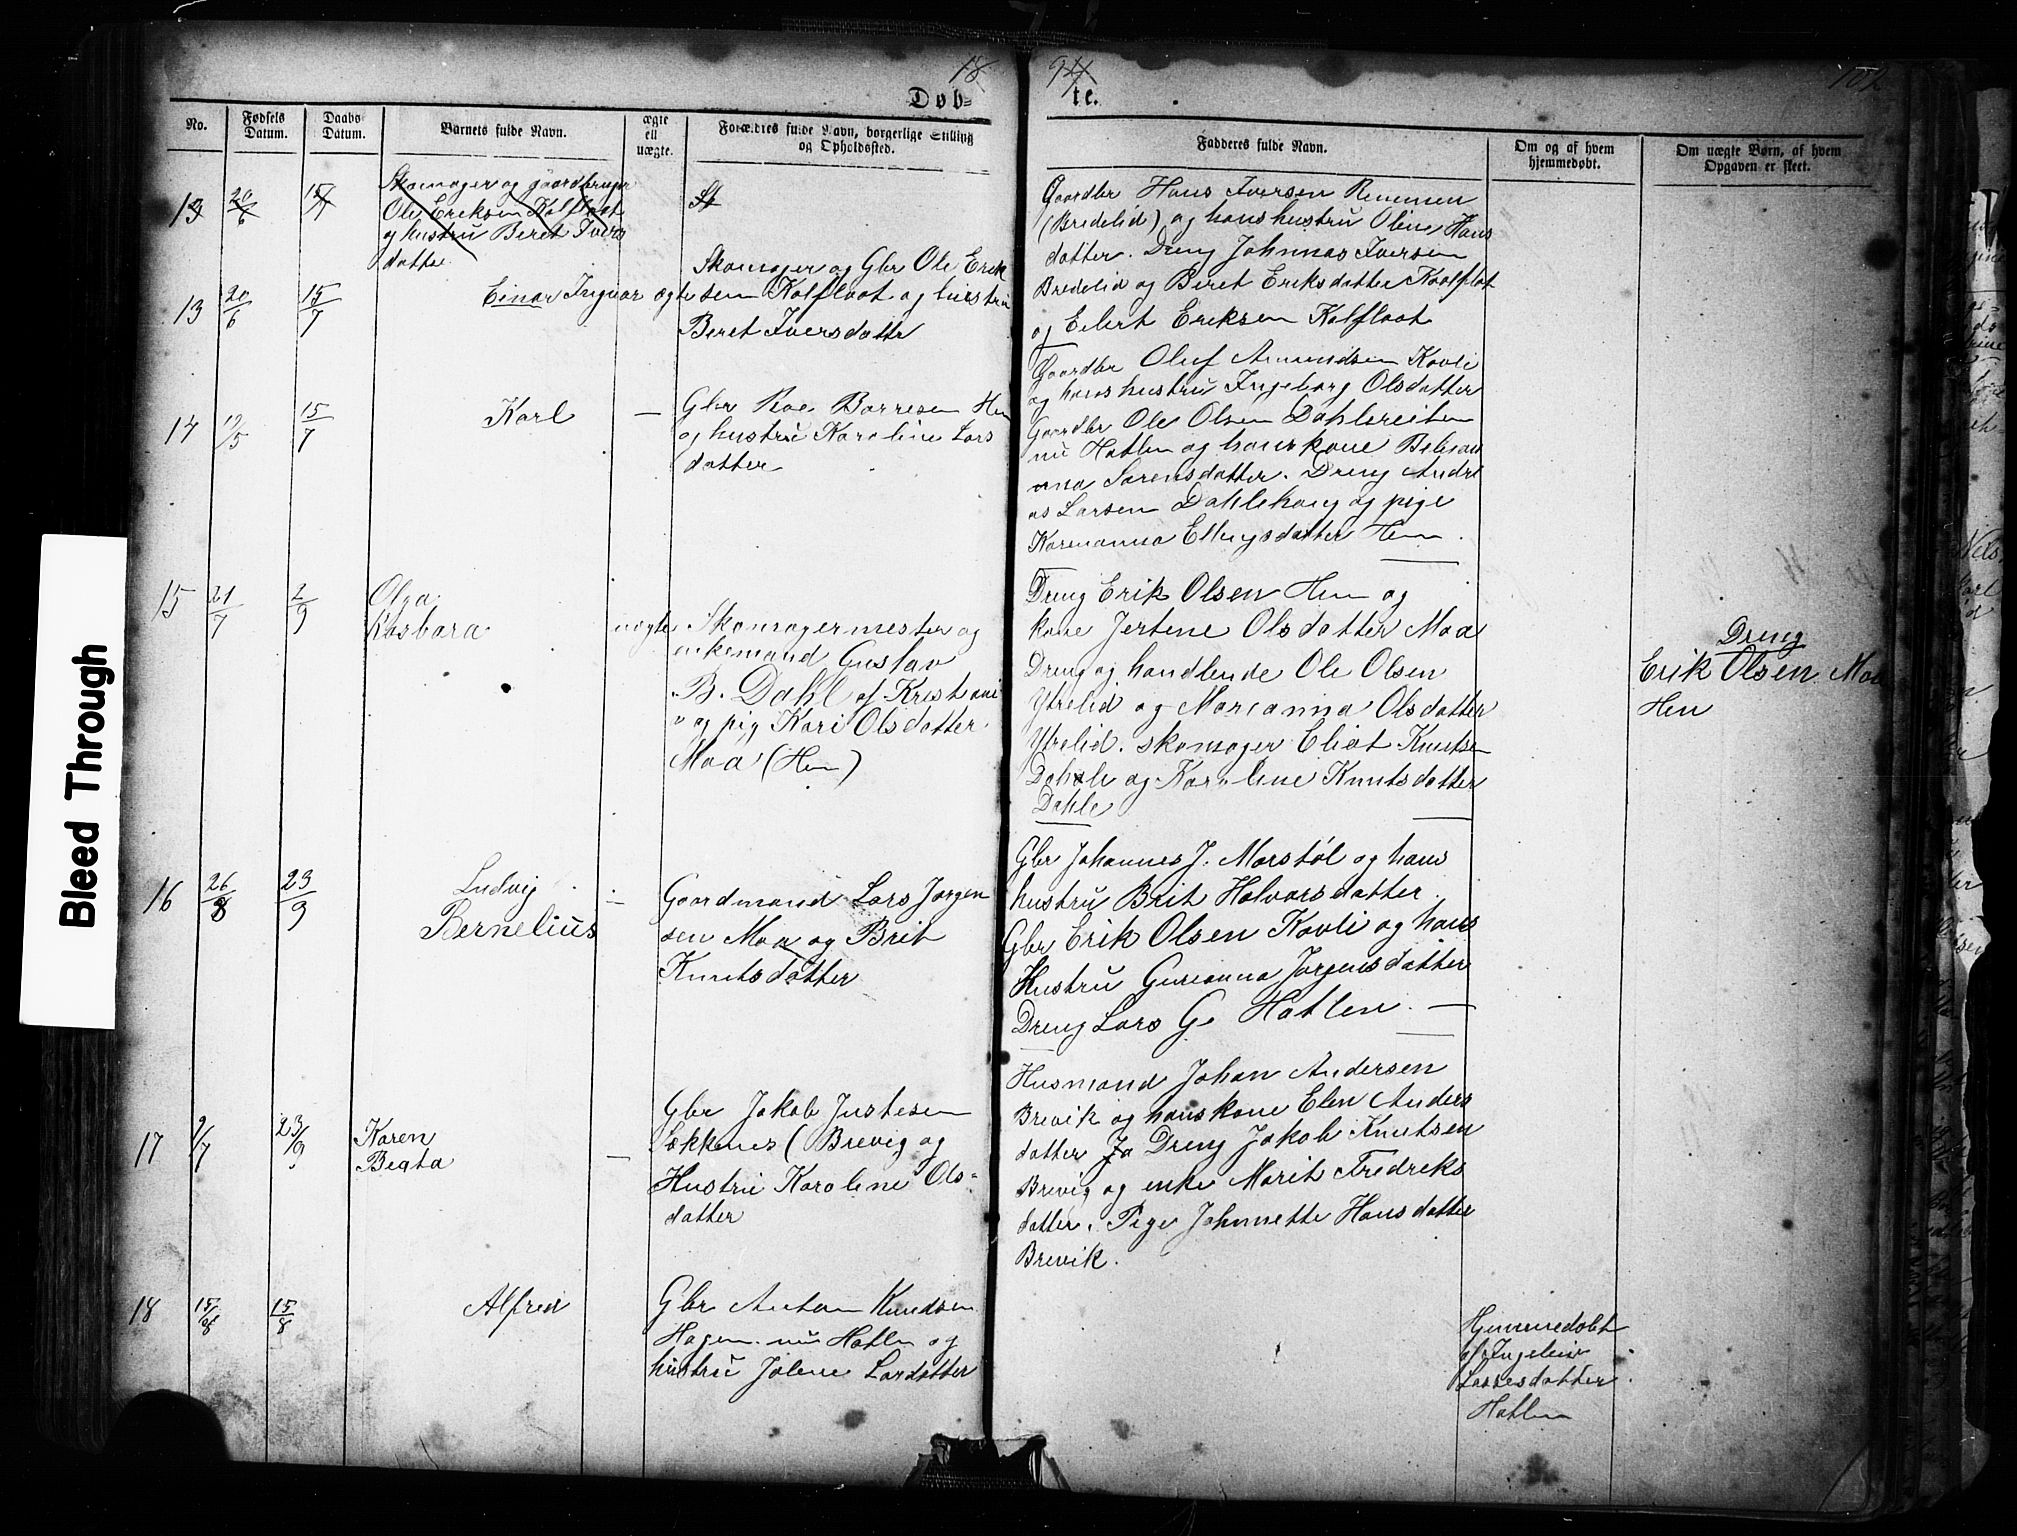 18
94
102
Døb-
te.
No.
Fødsels Datum.
Daabs Datum.
Barnets fulde Navn.
ægte ell uægte.
Forældres fulde Navn, borgerlige Stilling og Opholdssted.
Faddernes fulde Navn.
Om og af hvem hjemmedøbt.
Om uægte Børn, af hvem Opgaven er skeet.
13
20/6
15/7
Skomager og gaardbruger
Ole Eriksen Kolflaat
og hustru Beret Ivers
datter
13
20/6
15/7
Einar Ingvar
ægte
Skomager og Gbr Ole Erik
sen Kolflaat og hustru
Beret Iversdatter
Gaardbr Hans Iversen Remmen
(Bredelid) og hans hustru Oline Hans
datter. Dreng Johnnas Iversen
Bredelid og Beret Eriksdatter Kolflot
og Eilert Eriksen Kolflaat
14
15/7
Karl
—
Gbr Roe Borresen Hen
og hustru Karoline Lars
datter
Gaardbr Oluf Amundsen Kavli
og hans hustru Ingeborg Olsdatter
Gaardbr Ole Olsen Dahlsreiten
nu Hatlen og hans kone
Sørensdatter. Dreng Andre
as Larsen Dahlehaug og pige
Karenanna Ellingsdatter Hen.
15
21/7
2/9
Olga
Rasbara
uægte
Skomagermester og
enkemand Gustav
B. Dahl af Kristiani
a og pig Kari Olsdatter
Moa (Hen)
Dreng Erik Olsen Hen og
kone Jertine Olsdatter Moa
Dreng og handlende Ole Olsen
Ytrelid og Marianna Olsdatter
Ytrelid. skomager Eliot Knutsen
Dahle og Karoline Knutsdatter
Dahle
Dreng
Erik Olsen Moa
Hen
16
26/8
23/9
Ludvig
Bernelius
—
Gaardmand Lars Jørgen
sen Moa og Brit
Knutsdatter
Gbr Johannes J. Marstøl og hans
hustru Brit Halvorsdatter.
Gbr Erik Olsen Kavli og hans
Hustru Gurianna Jørgensdatter
Dreng Lars G. Hatlen. —
17
2/7
23/9
Karen
Beata
—
Gbr Jakob Justesen
Søkkenes (Brevig og
Hustru Karoline Ols-
datter
Husmand Johan Andersen
Brevik og hans kone Elen Anders
datter Dreng Jakob Knutsen
Brevig og enke Marit Fredreks
datter. Pige Johnnette Hansdatter
Brevik.
18
15/8
15/8
Alfred
Gbr Anton Knudsen
Hagen nu Hatlen og
hustru Jolene Larsdatter
Hjemmedøbt
af Ingeleiv
Lassesdatter
Hatlen
Bleed Through